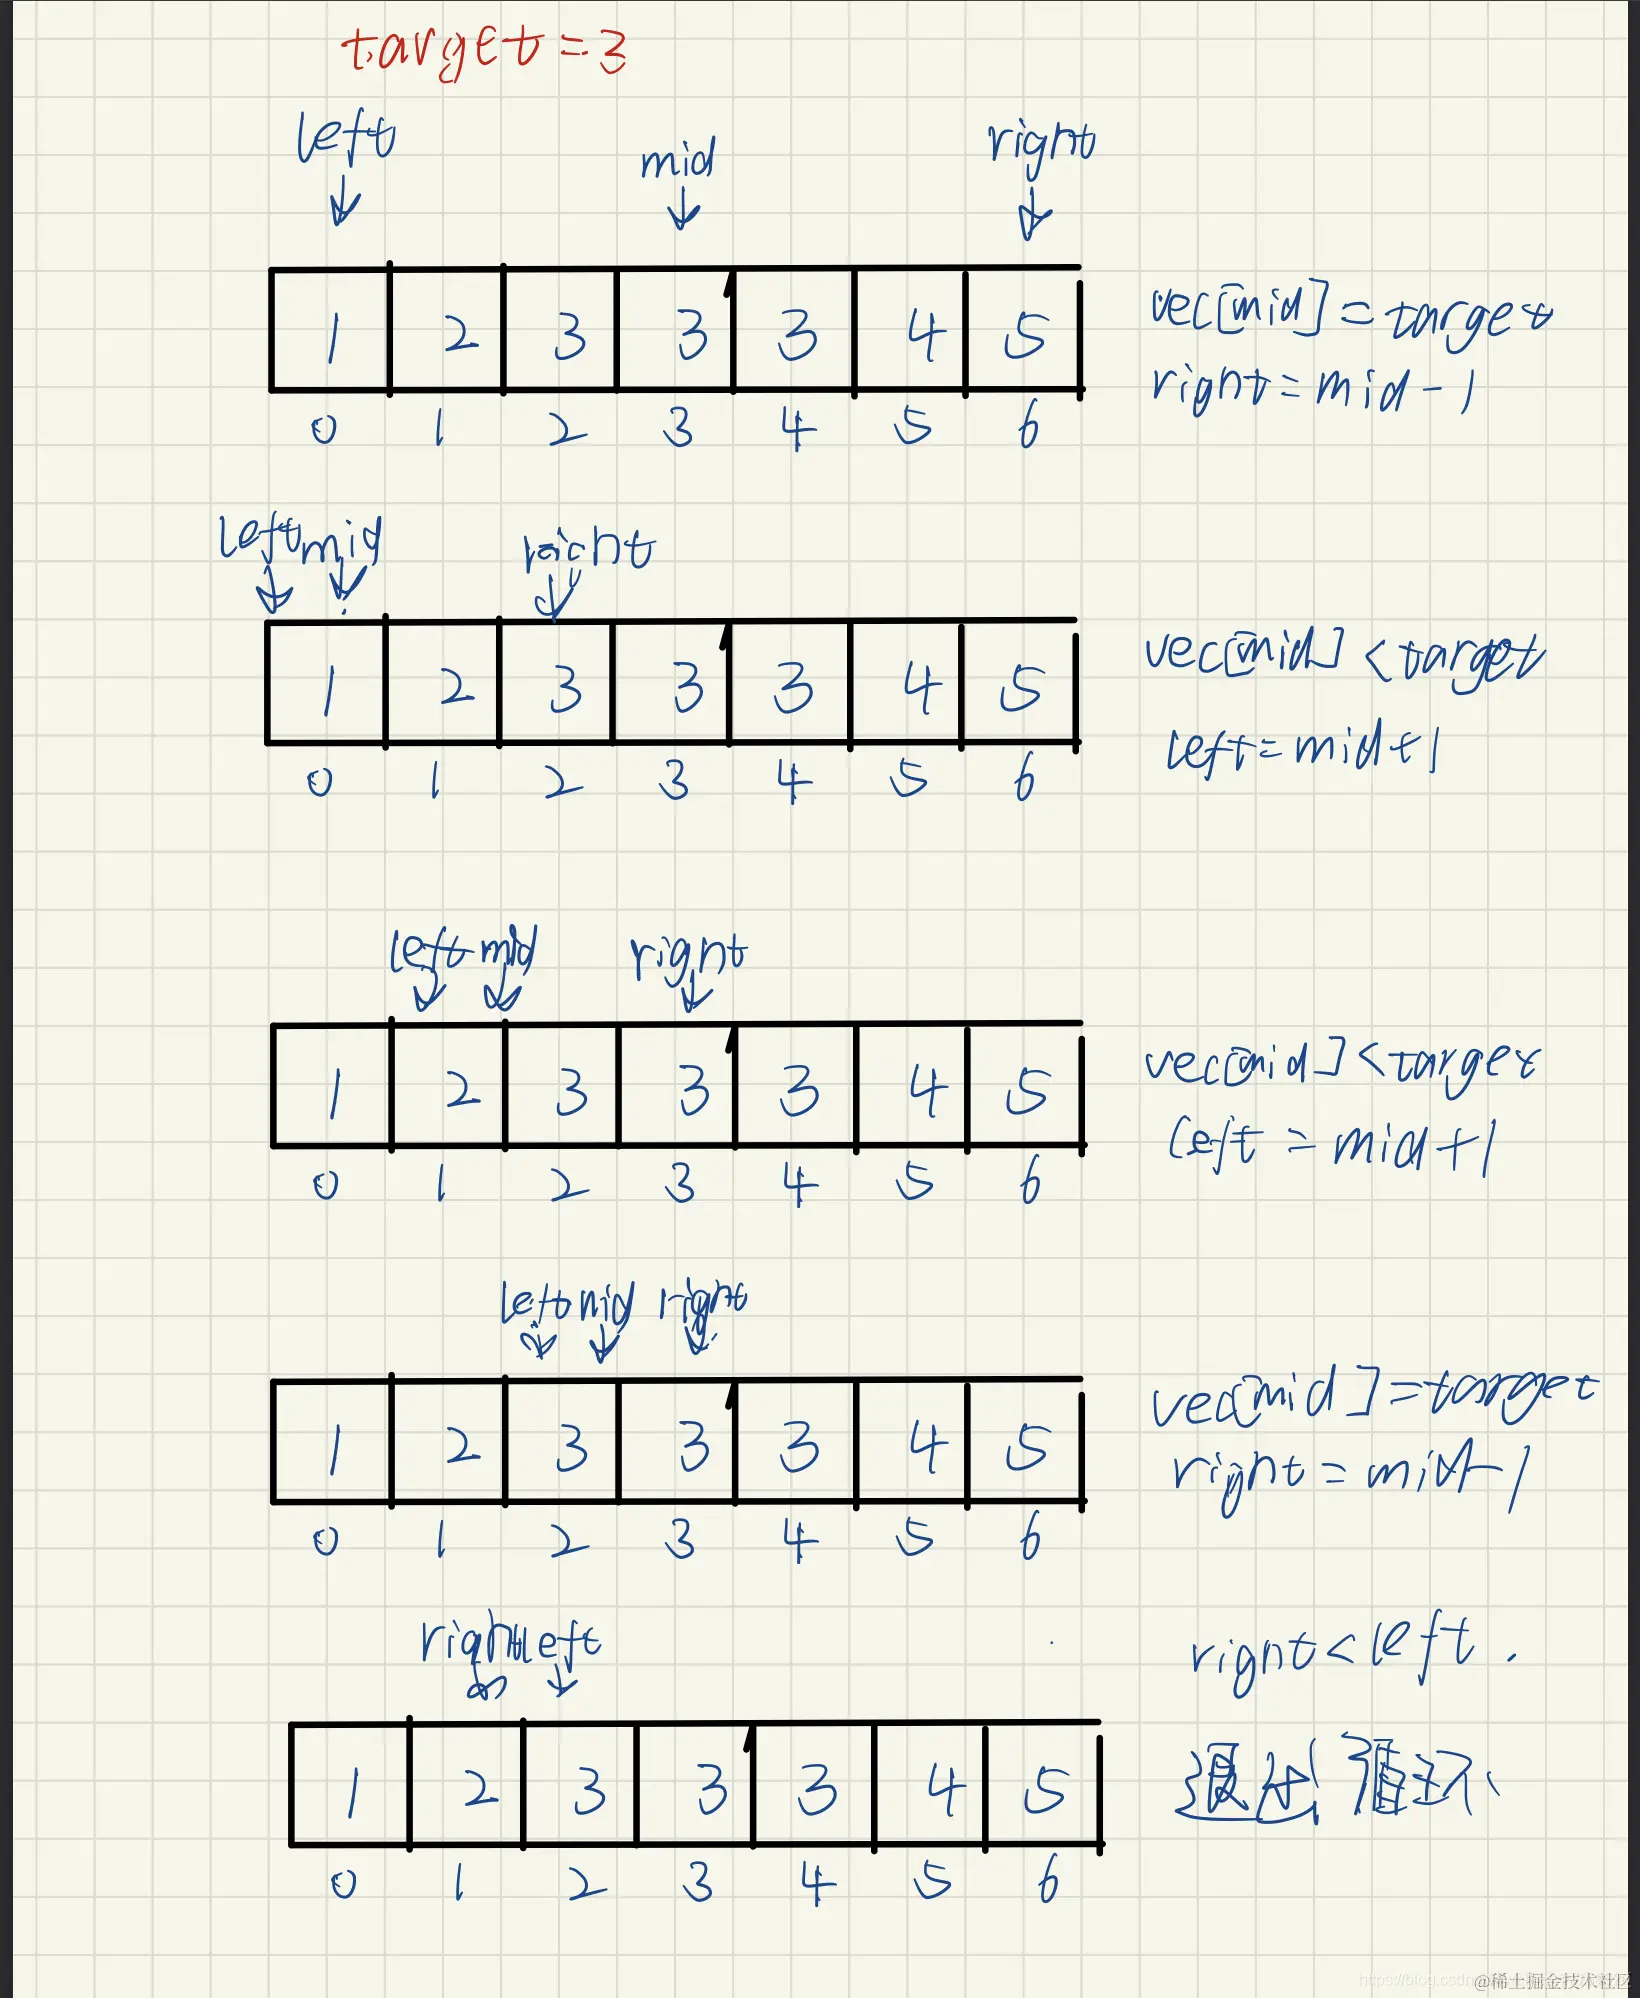 target=3
left mid right
1 2 3 3 3 4 5
0 1 2 3 4 5 6
vec[mid]=target
right=mid-1
left mid right
1 2 3 3 3 4 5
0 1 2 3 4 5 6
vec[mid]<target
left=mid+1
left mid right
1 2 3 3 3 4 5
0 1 2 3 4 5 6
vec[mid]<target
left=mid+1
left mid right
1 2 3 3 3 4 5
0 1 2 3 4 5 6
vec[mid]=target
right=mid-1
right left
1 2 3 3 3 4 5
0 1 2 3 4 5 6
right<left.
退出循环
@稀土掘金技术社区